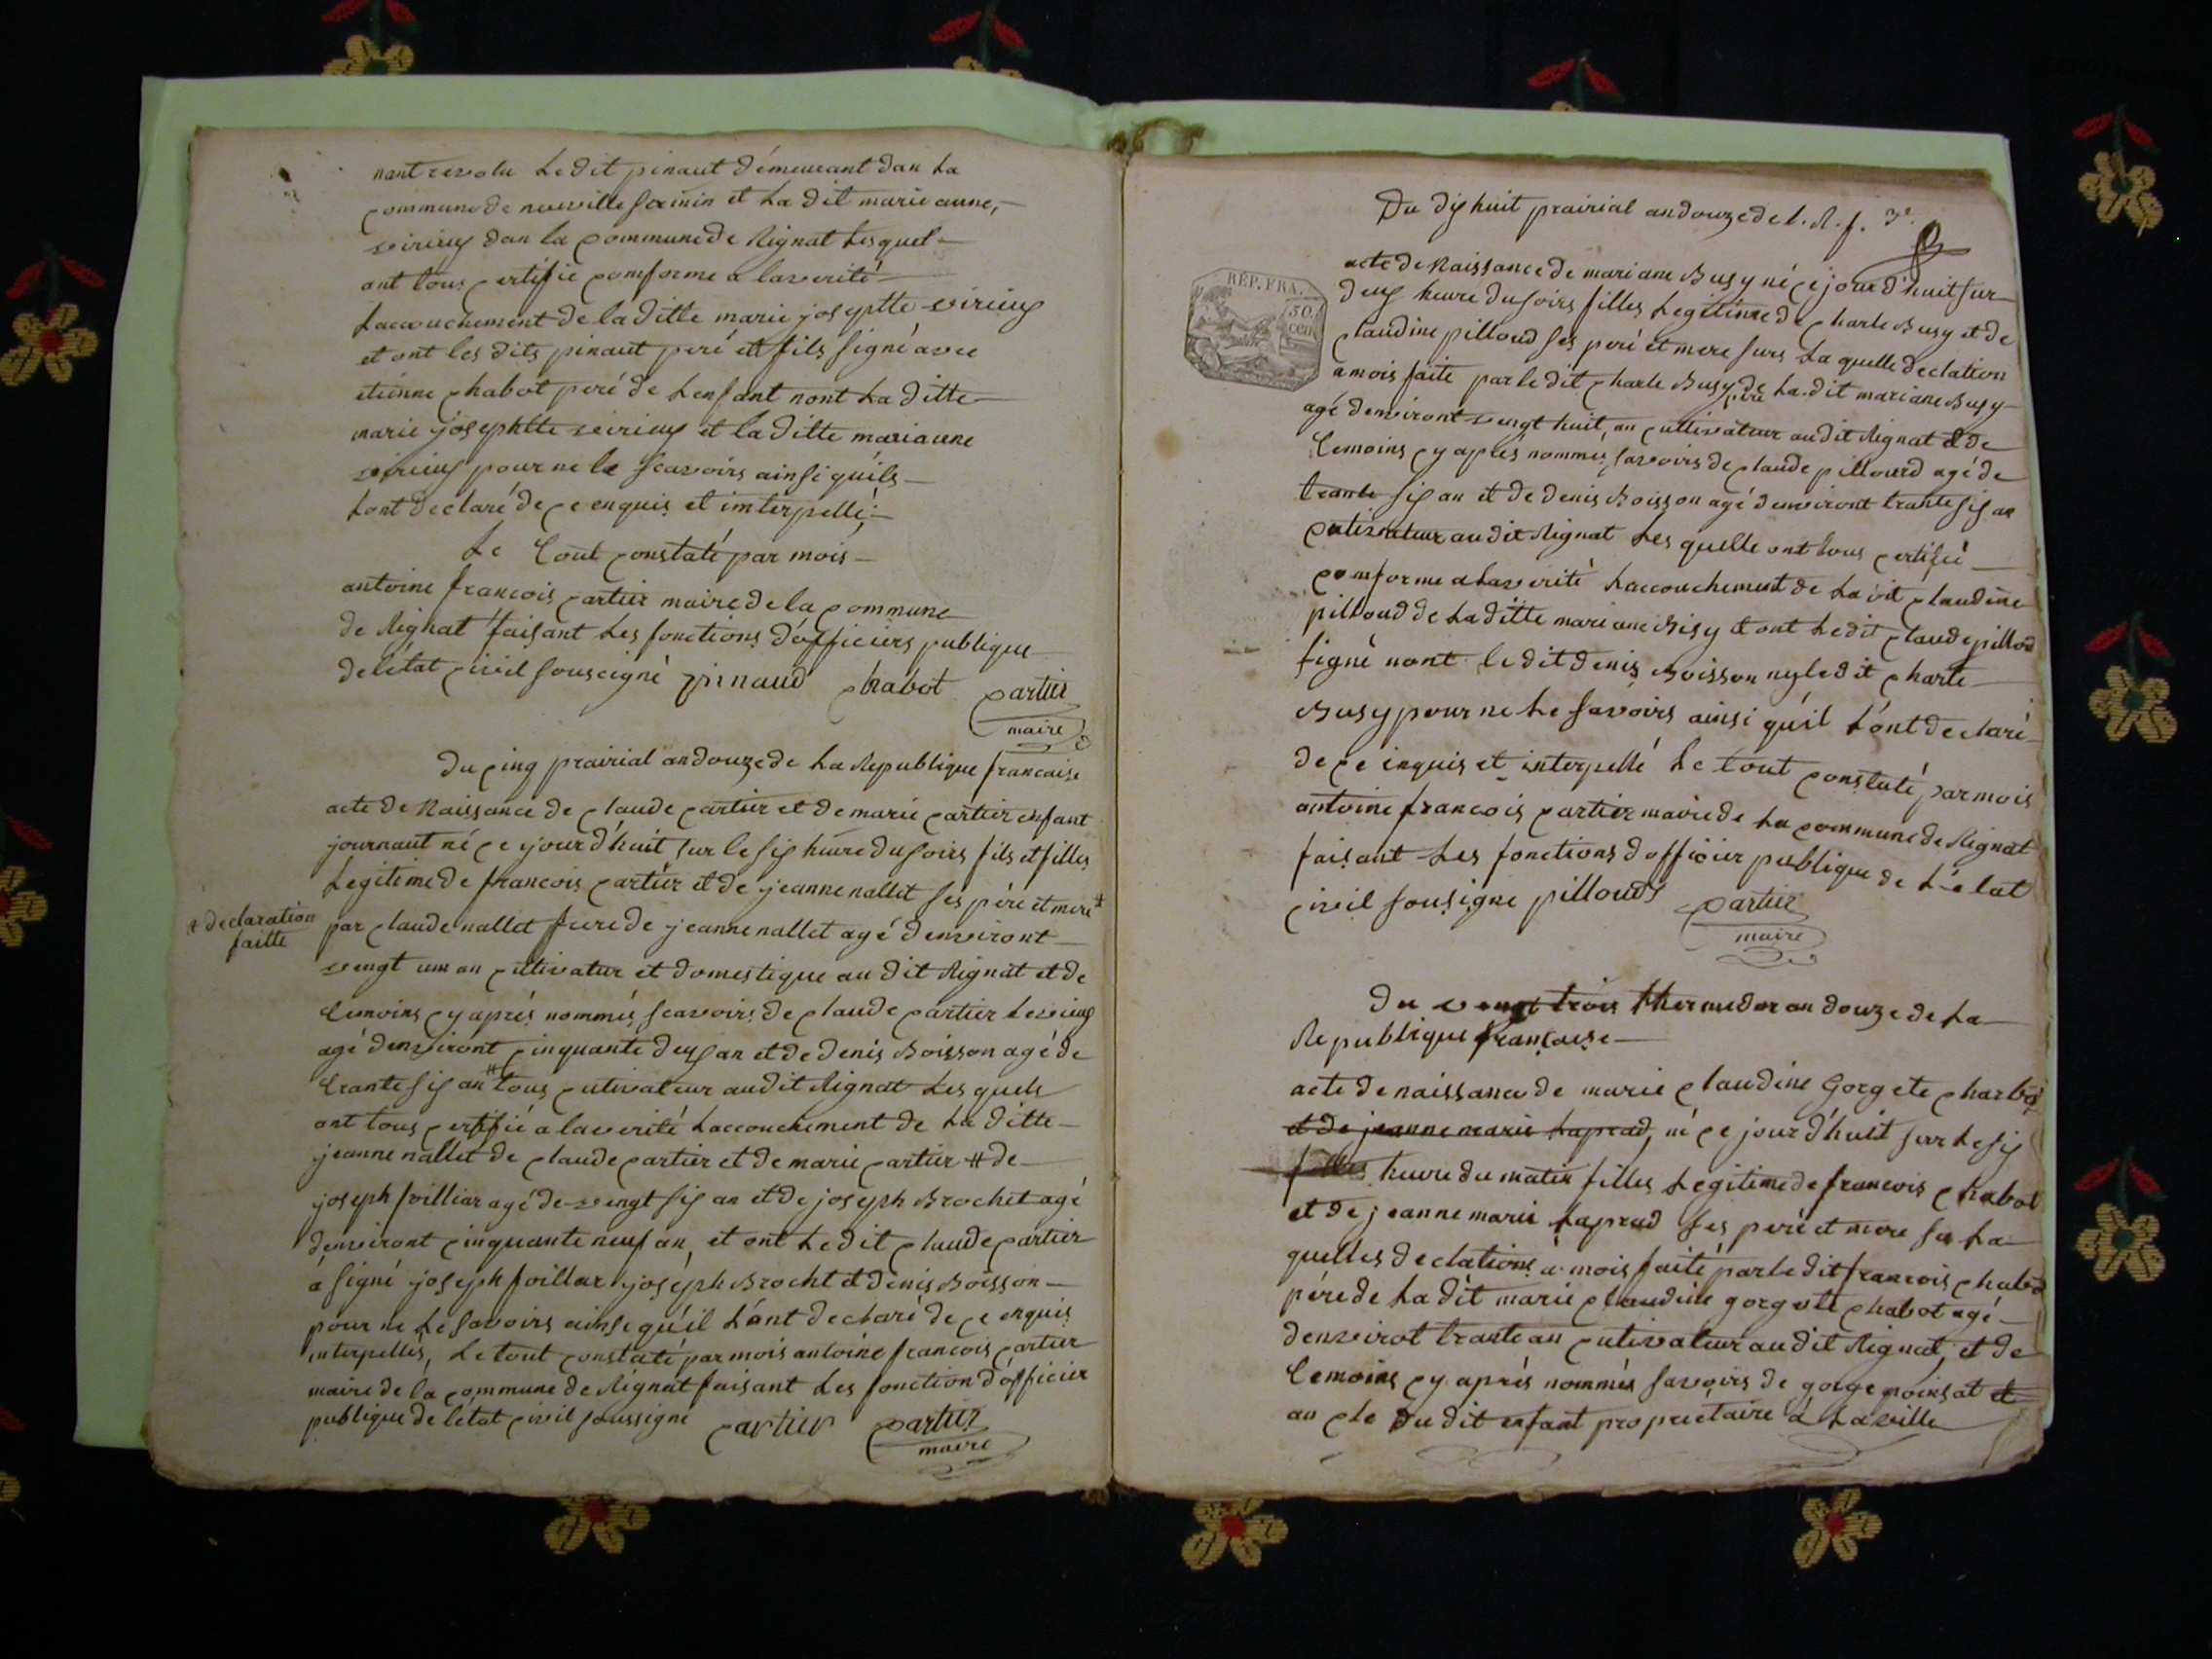 nant revolu Le dit pinaut démeurant dan La
commune de neuville samin et La dit marie anne,
virieux dan la commune de Rignat Lesquel
ont tous certifie comforme a laverité
Laccouchement de la ditte marie joseptte virieux
et ont les dits pinaut peré ett fils signé avec
etienne chabot peré de Lenfant nont La ditte
marie josephtte virieux et la ditte marianne
virieux pour ne le scavoirs ainsi quils
Lont declaré de ce enquis et imterpellé
Le tout constaté par mois
antoine francois cartier maire de la commune
de Rignat faisant Les fonctions d'officiers publique
de létat civil souscigné pinaud chabot cartier
maire
Du cinq prairial an douze de La Republique francaise
acte de Naissance de claude cartier et de marie cartier enfant
journaut né ce jourd'huit sur le six heure du soirs fils et filles
Legitime de francois cartier et de jeanne nallet ses père et mere #
# declaration
faitte
par claude nallet frere de jeanne nallet agé denviront
vingt um an cultivatur et domestique au dit Rignat et de
temoins cy aprés nommés scavoirs de claude cartier Levieux
agé denviront cinquante deux an et de denis Boisson agé de
trante six an # tous cutivateur audit Rignat Les quels
ont tous certifié a laverité Laccouchement de La ditte
jeanne nallet de claude cartier et de marie cartier # de
joseph foilliar agé de vingt six an et de joseph Brochet agé
denviront cinquante neuf an, et ont Ledit claude cartier
á signé joseph foillar joséph Brocht et denis Boisson
pour ne Le savoirs ainse qu'il L'ont declaré de ce enquis
interpellés, Le tout constaté par mois antoine francois cartier
maire de la commune de Rignat faisant Les fonction d'officier
publique de létat civil soussigne cartier cartier
maire
Du dix huit prairial an douze de l. R. f. 3e.
RÉP. FRA.
50
cen
acte de Naissance de mariane Busy né ce jour d'huit sur
deux heure du soirs filles Legitime de charle Busy et de
claudine pilloud ses peré et mere surs La quelle declation
a mois faite par le dit charle Busy pere de La dit mariane Busy
agé denviront vingt huit, an cultivateur audit Rignat et de
temoins cy aprés nommés, savoirs de claude pillourd agé de
trante six an et de denis Boisson agé denviront trante six an
cutivateur audit Rignat Les quelle ont tous certifié
comforme a Laverité Laccouchement de La dit claudine
pilloud de La ditte mariane Bisy et ont Le dit claude pilloud
signé nont le dit denis Boisson ny le dit charle
Busy pour ne Le savoirs ainsi qu'il L'ont declaré
de ce inquis et interpellé Le tout constaté par mois
antoine francois cartier maire de La commune de Rignat
faisant Les fonctions dofficier publique de L'etat
civil sousigne pilloud cartier
maire
Du vengt trois thermider an douze de La
Republique francaise
acte de naissance de marie claudine Gorgete chabot
et de jeanne marie Laprad, né ce jour d'huit sur Le six
filles heure du matin filles Legitime de francois chabot
et de jeanne marie Laprad ses peré et mere su La
quelles declations a mois faité par le dit francois chabot
pére de La dit marie claudine gorgete chabot agé
denvirot trante an cutivateur au dit Rignat, et de
temoins cy aprés nommés savoirs de gorge poinsat et
an cle du dit enfant proprietaire á La ville